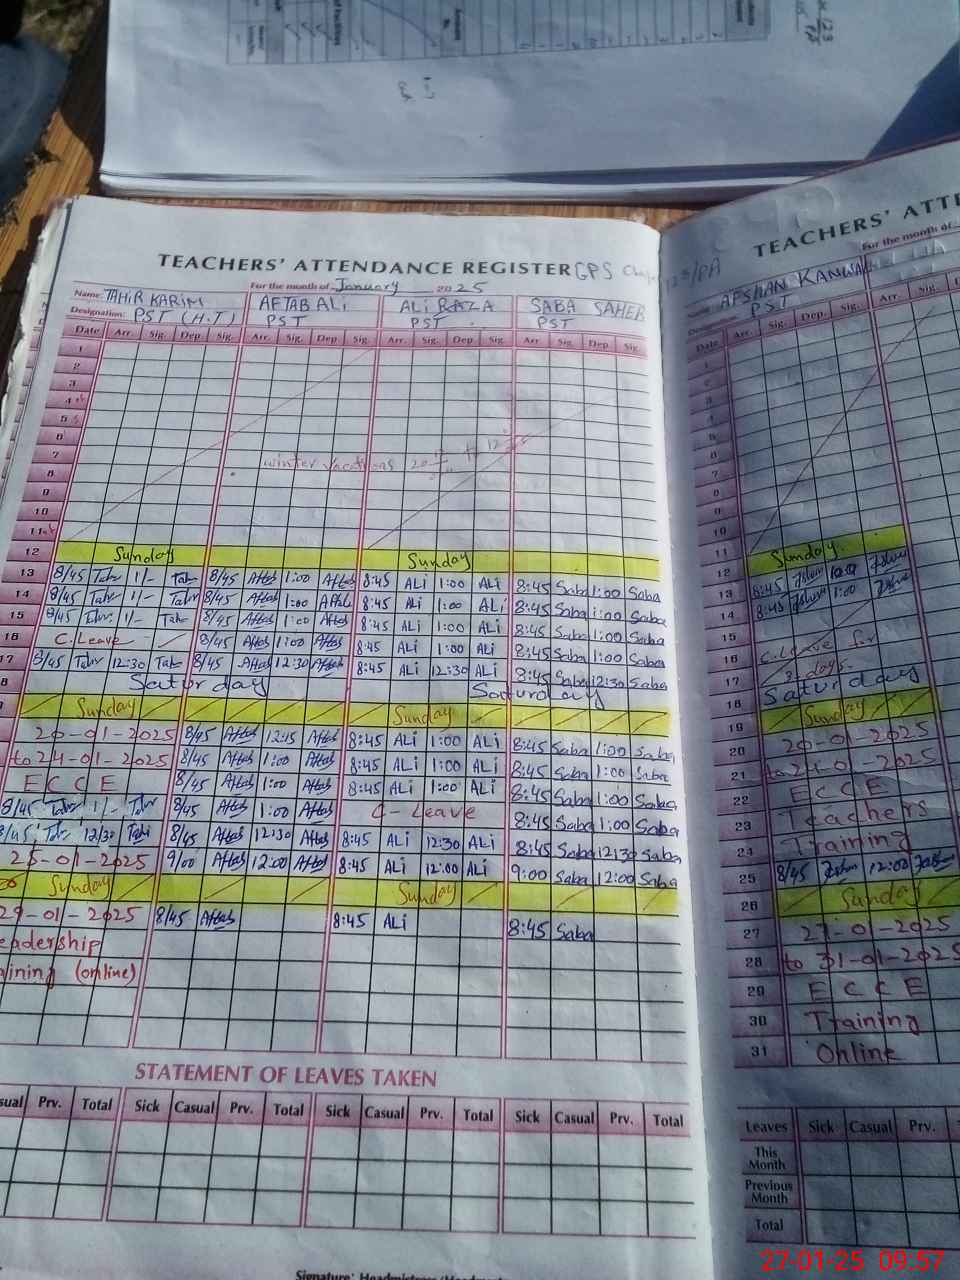 TEACHERS' ATTENDANCE REGISTER GPS
For the month of January 2025
Name: TAHIR KARIM AFTAB ALI ALI RAZA SABA SAHER
Designation: PST (H.T) PST PST PST
Date Arr. Sig. Dep. Sig. Arr. Sig. Dep. Sig. Arr. Sig. Dep. Sig. Arr. Sig. Dep. Sig.
1
2
3
4
5
6
7
winter vacations 20
8
9
10
11
12 Sunday Sunday
13 8/45 Tahr 1/- Tahr 8/45 Aftab 1:00 Aftab 8:45 ALi 1:00 ALi 8:45 Saba 1:00 Saba
14 8/45 Tahr 1/- Tahr 8/45 Aftab 1:00 Aftab 8:45 ALi 1:00 ALi 8:45 Saba 1:00 Saba
15 8/45 Tahr 1/- Tahr 8/45 Aftab 1:00 Aftab 8:45 ALi 1:00 ALi 8:45 Saba 1:00 Saba
16 C.Leave 8/45 Aftab 1:00 Aftab 8:45 ALi 1:00 ALi 8:45 Saba 1:00 Saba
17 8/45 Tahr 12:30 Tahr 8/45 Aftab 12:30 Aftab 8:45 ALi 12:30 ALi 8:45 Saba 12:30 Saba
8 Saturday Saturday
Sunday Sunday
20-01-2025 8/45 Aftab 12:15 Aftab 8:45 ALi 1:00 ALi 8:45 Saba 1:00 Saba
to 24-01-2025 8/45 Aftab 1:00 Aftab 8:45 ALi 1:00 ALi 8:45 Saba 1:00 Saba
E C C E 8/45 Aftab 1:00 Aftab 8:45 ALi 1:00 ALi 8:45 Saba 1:00 Saba
8/45 Tahr 1/- Tahr 8/45 Aftab 1:00 Aftab C-Leave 8:45 Saba 1:00 Saba
8/45 Tahr 12/30 Tahr 8/45 Aftab 12:30 Aftab 8:45 ALi 12:30 ALi 8:45 Saba 12:30 Saba
25-01-2025 9/00 Aftab 12:00 Aftab 8:45 ALi 12:00 ALi 9:00 Saba 12:00 Saba
Sunday Sunday
29-01-2025 8/45 Aftab 8:45 ALi 8:45 Saba
eadership
aining (online)
STATEMENT OF LEAVES TAKEN
sual Prv. Total Sick Casual Prv. Total Sick Casual Prv. Total Sick Casual Prv. Total
Signature: Headmistress
TEACHERS' ATTE
For the month of
AFSHAN KANWAL
PST
Date Arr. Sig. Dep. Sig. Arr. Sig.
1
2
3
4
5
6
7
8
9
10
11 Sunday
12
13 8:45
14 8:45 1:00
15
16 C.Leave for
17 days.
18 Saturday
19 Sunday
20 20-01-2025
21 to 24-01-2025
22 E C C E
23 Teachers
24 Training
25 8/45 12:00
26 Sunday
27 27-01-2025
28 to 31-01-2025
29 E C C E
30 Training
31 Online
Leaves Sick Casual Prv.
This Month
Previous Month
Total
27-01-25 09:57